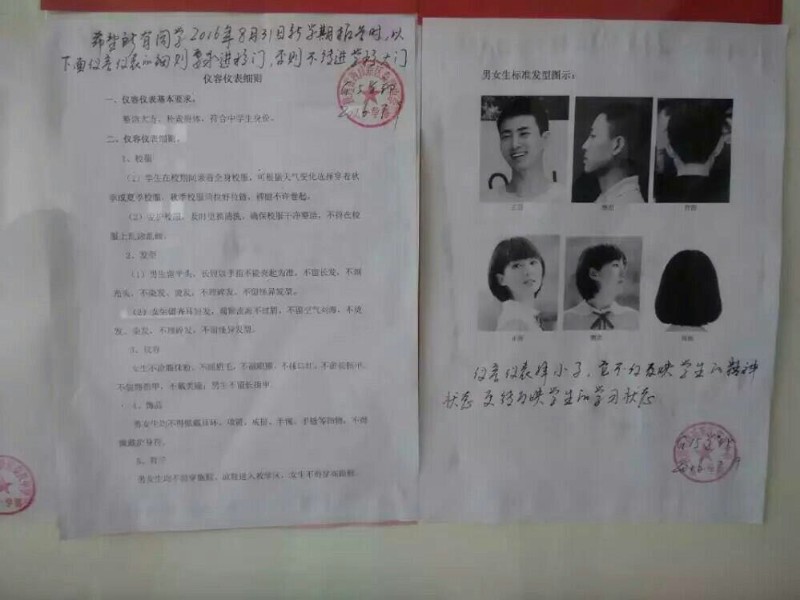 希望所有同学2016年8月31日新学期报告时，以
下面仪容仪表的细则要求进校门，否则不得进学校大门
仪容仪表细则
一、仪容仪表基本要求：
整洁大方、朴素得体、符合中学生身份。
二、仪容仪表细则。
1、校服
（1）学生在校期间须着全身校服，可根据天气变化选择穿着秋
季或夏季校服，秋季校服须拉好拉链，裤腿不许卷起。
校服，及时更换清洗，确保校服干净整洁，不得在校
服上乱涂乱画。
2、发型
（1）男生留平头，长度以手指不能夹起为准，不留长发，不剃
光头，不染发、烫发，不理碎发，不留怪异发型。
不留空气刘海，不烫
发、染发，不理碎发，不留怪异发型。
3、仪容
女生不涂脂抹粉，不画眉毛，不画眼圈，不抹口红，不留长指甲，
不装饰指甲，不戴美瞳；男生不留长指甲
4、饰品
男女生均不得佩戴耳环、项链、戒指、手镯、手链等饰物，不得
佩戴护身符。
5、鞋子
男女生均不能穿拖鞋
男女生标准发型图示：
正面
侧面
背面
正面
侧面
背面
仪容仪表择小了，它不仅反映学生的精神
状态 更能反映学生的学习状态